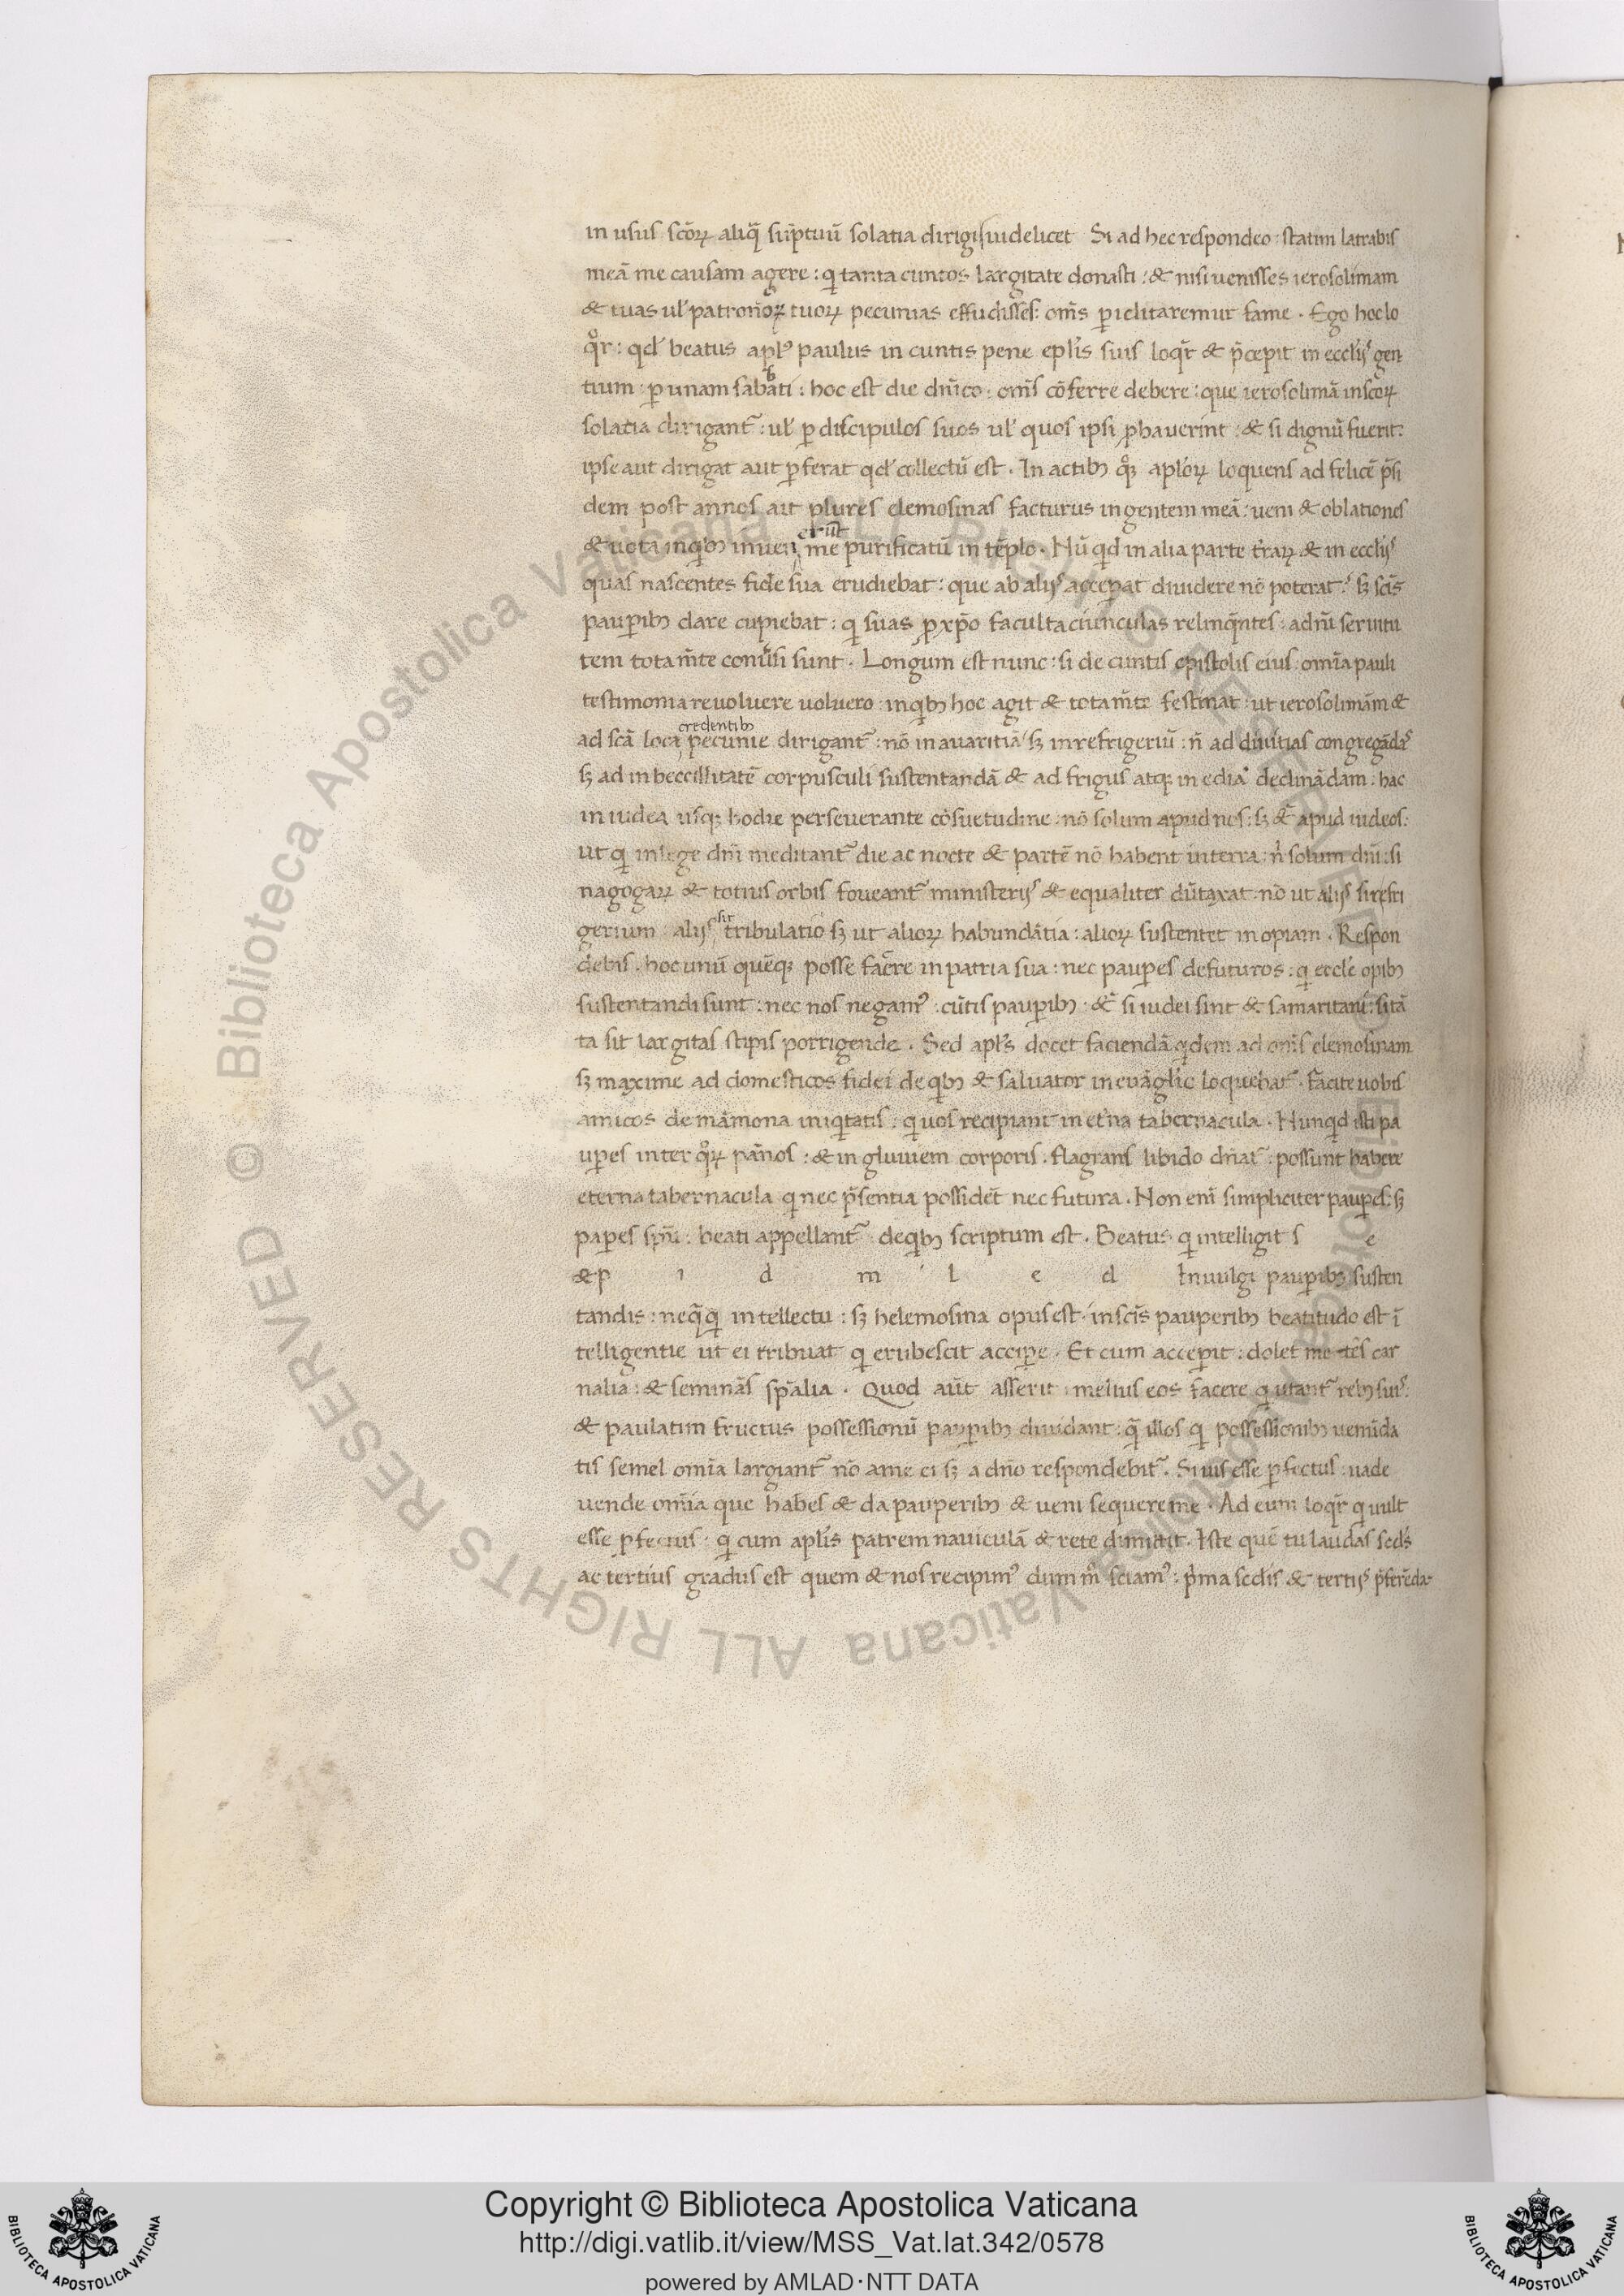 in usus sc̄oꝝ aliq̄ sūptuū solatia dirigi uidelicet Si ad hec respondeo : statim latrabis
meā me causam agere : qͥ tanta cuntos largitate donasti : & nisi uenisses ierosolimam
& tuas ul' patronoꝝ tuoꝝ pecunias effudisses : om̄s ꝑiclitaremur fame . Ego hoc lo
qͦr : qd' beatus apl's paulus in cuntis pene epl'is suis loqͥr & p̄cepit in eccl'ijs gen
tium : ꝑ unam sabbati : hoc est die dn̄ico : om̄s cōferre debere : que ierosolimā in sc̄oꝝ
solatia dirigantᷣ : ul' ꝑ discipulos suos ul' quos ipsi ꝓbauerint : & si dignū fuerit :
ipse aut dirigat aut ꝑferat qd' collectū est . In actibꝫ qͦꝫ apl'oꝝ loquens ad felicē p̄si
dem post annos ait plures elemosinas facturus in gentem meā : ueni & oblationes
& uota in qͥbꝫ inuenerūt me purificatū in tēplo . Nū qͥd in alia parte t̄raꝝ & in eccl'ijs
quas nascentes fide sua erudiebat : que ab alijs acceꝑat diuidere nō poterat : sꝫ sc̄is
pauꝑibꝫ dare cupiebat : qͥ suas ꝓ xp̄o facultaciunculas relinqͥntes : ad dn̄i seruitu
tem tota m̄te conuersi sunt . Longum est nunc : si de cuntis epistolis eius : om̄ia pauli
testimonia reuoluere uoluero : in qͥbꝫ hoc agit & tota m̄te festinat : ut ierosolimam &
ad sc̄a loca credentibꝫ pecunie dirigantᷣ : nō in auaritiā sꝫ in refrigeriū : n̄ ad diuitias congregādas
sꝫ ad inbeccillitatē corpusculi sustentandā & ad frigus atqꝫ in ediā declinādam : hac
in iudea usqꝫ hodie perseuerante cōsuetudine : nō solum apud nos : sꝫ &̄ apud iudeos :
ut qͥ in lege dn̄i meditantᷣ die ac nocte & partē nō habent in terra : nͥ solum dn̄i : si
nagogaꝝ & totius orbis foueantᷣ ministerijs & equaliter dūtaxat : nō ut alijs sit refri
gerium alijs sit tribulatio sꝫ ut alioꝝ habundātia : alioꝝ sustentet inopiam . Respon
debis . hoc unū quēqꝫ posse facere in patria sua : nec pauꝑes defuturos : qͥ eccl'e opibꝫ
sustentandi sunt : nec nos negamꝰ : cūtis pauꝑibꝫ &̄ si iudei sint & samaritani : si tā
ta sit largitas stipis porrigende . Sed apl's docet faciendā qͥdem ad om̄s elemosinam
sꝫ maxime ad domesticos fidei de qͥbꝫ & saluator in euāgl'io loquebatᷣ . facite uobis
amicos de māmona iniqͥtatis : qͥ uos recipiant in et̄na tabernacula . Nunqͥd isti pa
uꝑes inter qͦꝝ pānos : & ingluuiem corporis . flagrans libido dn̄atᷣ : possunt habere
eterna tabernacula qͥ nec p̄sentia possidēt nec futura . Non enī simpliciter pauꝑes : sꝫ
paꝑes sp̄u : beati appellantᷣ : de qͥbꝫ scriptum est . Beatus qͥ intelligit s e
& p i d m l e d In uulgi pauꝑibꝫ susten
tandis : neqͣqͣ intellectu : sꝫ helemosina opus est . in sc̄is pauperibꝫ beatitudo est ī
telligentie ut ei tribuat qͥ erubescit acciꝑe . Et cum acceꝑit : dolet metēs car
nalia : & seminās sp̄alia . Quod aūt asserit : melius eos facere qͥ utantᷣ rebꝫ suis :
& paulatim fructus possessionū pauꝑibꝫ diuidant : qͣ illos qͥ possessionibꝫ uenūda
tis semel om̄ia largiantᷣ nō a me ei sꝫ a dn̄o respondebitᷣ . Si uis esse ꝑfectus : uade
uende om̄ia que habes & da pauperibꝫ & ueni sequere me . Ad eum loqͥr qͥ uult
esse ꝑfectus : qͥ cum apl'is patrem nauiculā & rete dimittit . Iste quē tu laudas sc̄ds
ac tertius gradus est quem & nos recipimꝰ dum mͦ sciamꝰ : pͥma sc̄dis & tertijs p̄ferēda .
Copyright © Biblioteca Apostolica Vaticana
http://digi.vatlib.it/view/MSS_Vat.lat.342/0578
powered by AMLAD·NTT DATA
BIBLIOTECA APOSTOLICA VATICANA
BIBLIOTECA APOSTOLICA VATICANA
© Biblioteca Apostolica Vaticana ALL RIGHTS RESERVED
© Biblioteca Apostolica Vaticana ALL RIGHTS RESERVED